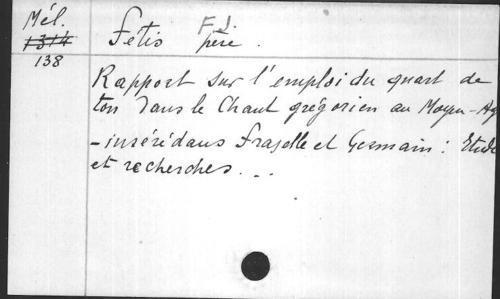 Mél.
1314
138
Fétis F. J.
père.
Rapport sur l'emploi du quart de
ton dans le Chant grégorien au Moyen-Ag
- inséré dans Frazelle et Germain : Etude
et recherches...